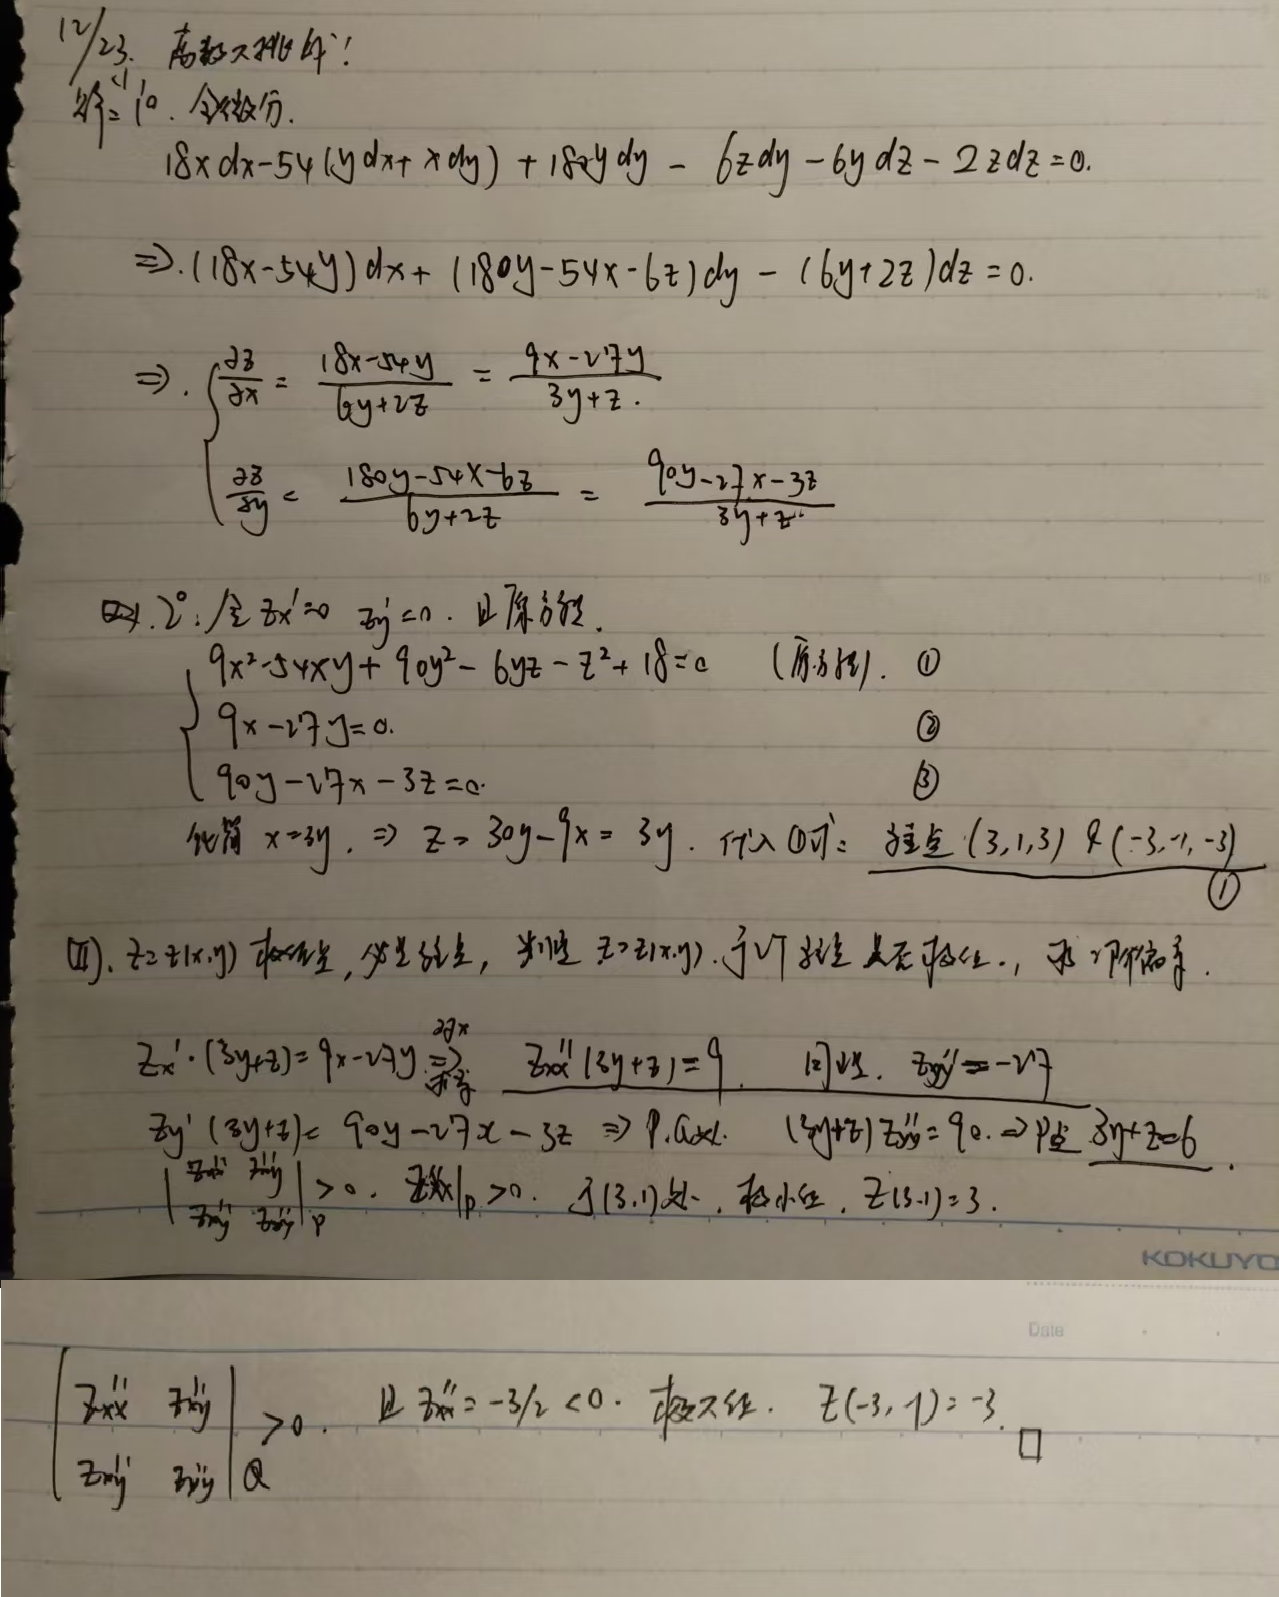 12/23. 高数大挑战!
解:<1> 1°. 全微分.
18xdx-54(ydx+xdy)+180ydy-6zdy-6ydz-2zdz=0.
⇒.(18x-54y)dx+(180y-54x-6z)dy-(6y+2z)dz=0.
⇒. { ∂z/∂x = (18x-54y)/(6y+2z) = (9x-27y)/(3y+z).
∂z/∂y = (180y-54x-6z)/(6y+2z) = (90y-27x-3z)/(3y+z)
2°. 令 zx'=0 zy'=0. 且原方程.
{ 9x²-54xy+90y²-6yz-z²+18=0 (原方程). ①
9x-27y=0. ②
90y-27x-3z=0. ③
化简 x=3y. ⇒ z=30y-9x=3y. 代入①式: 驻点(3,1,3) & (-3,-1,-3)
①
(II). z=z(x,y) 极值点,必是驻点, 判定 z=z(x,y).于 驻点是否极值., 求二阶偏导.
zx'·(3y+z)=9x-27y ⇒ zxx''(3y+z)=9 同时. zxy''=-27
zy'(3y+z)=90y-27x-3z ⇒ P.Q处. (3y+z)zyy''=90.⇒P点 3y+z=6.
|zxx'' zxy''
zxy'' zyy''|P >0. zxx''|P >0. 于(3,1)处, 极小值. z(3,1)=3.
KOKUYO
Date
|zxx'' zxy''
zxy'' zyy''|Q >0. 且 zxx''=-3/2<0. 极大值. z(-3,-1)=-3. □